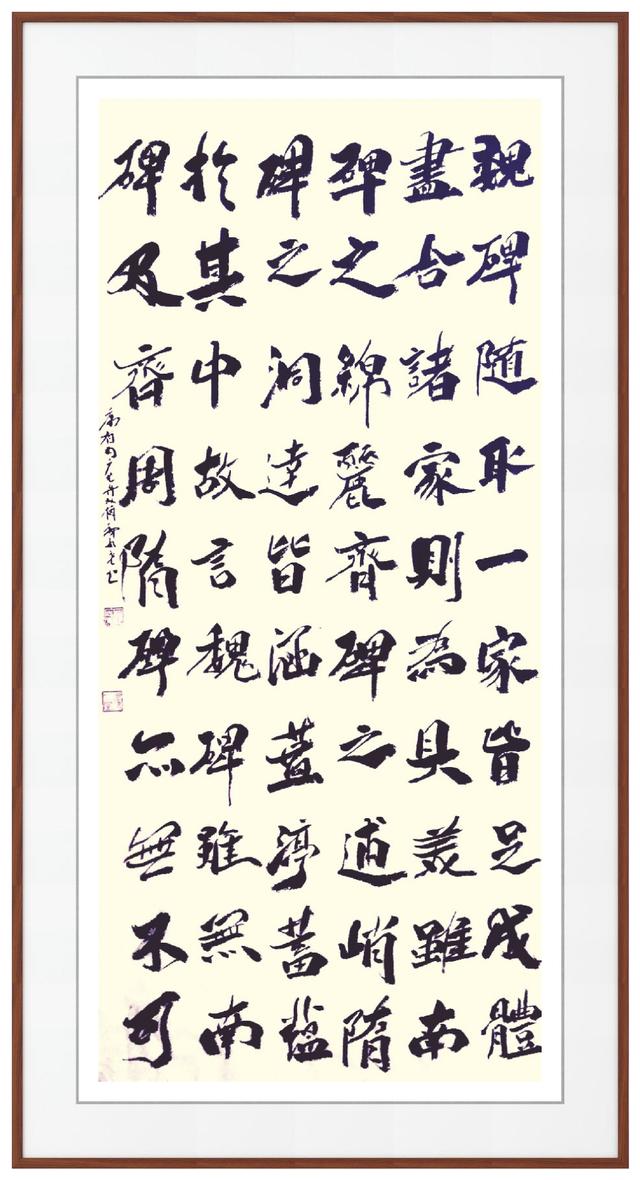 魏碑随取一家皆足成體
盡合諸家則為具美雖南
碑之綿麗齊碑之逋峭隋
碑之洞達皆涵蓋渟蓄蘊
於其中故言魏碑雖無南
碑及齊周隋碑亦無不可